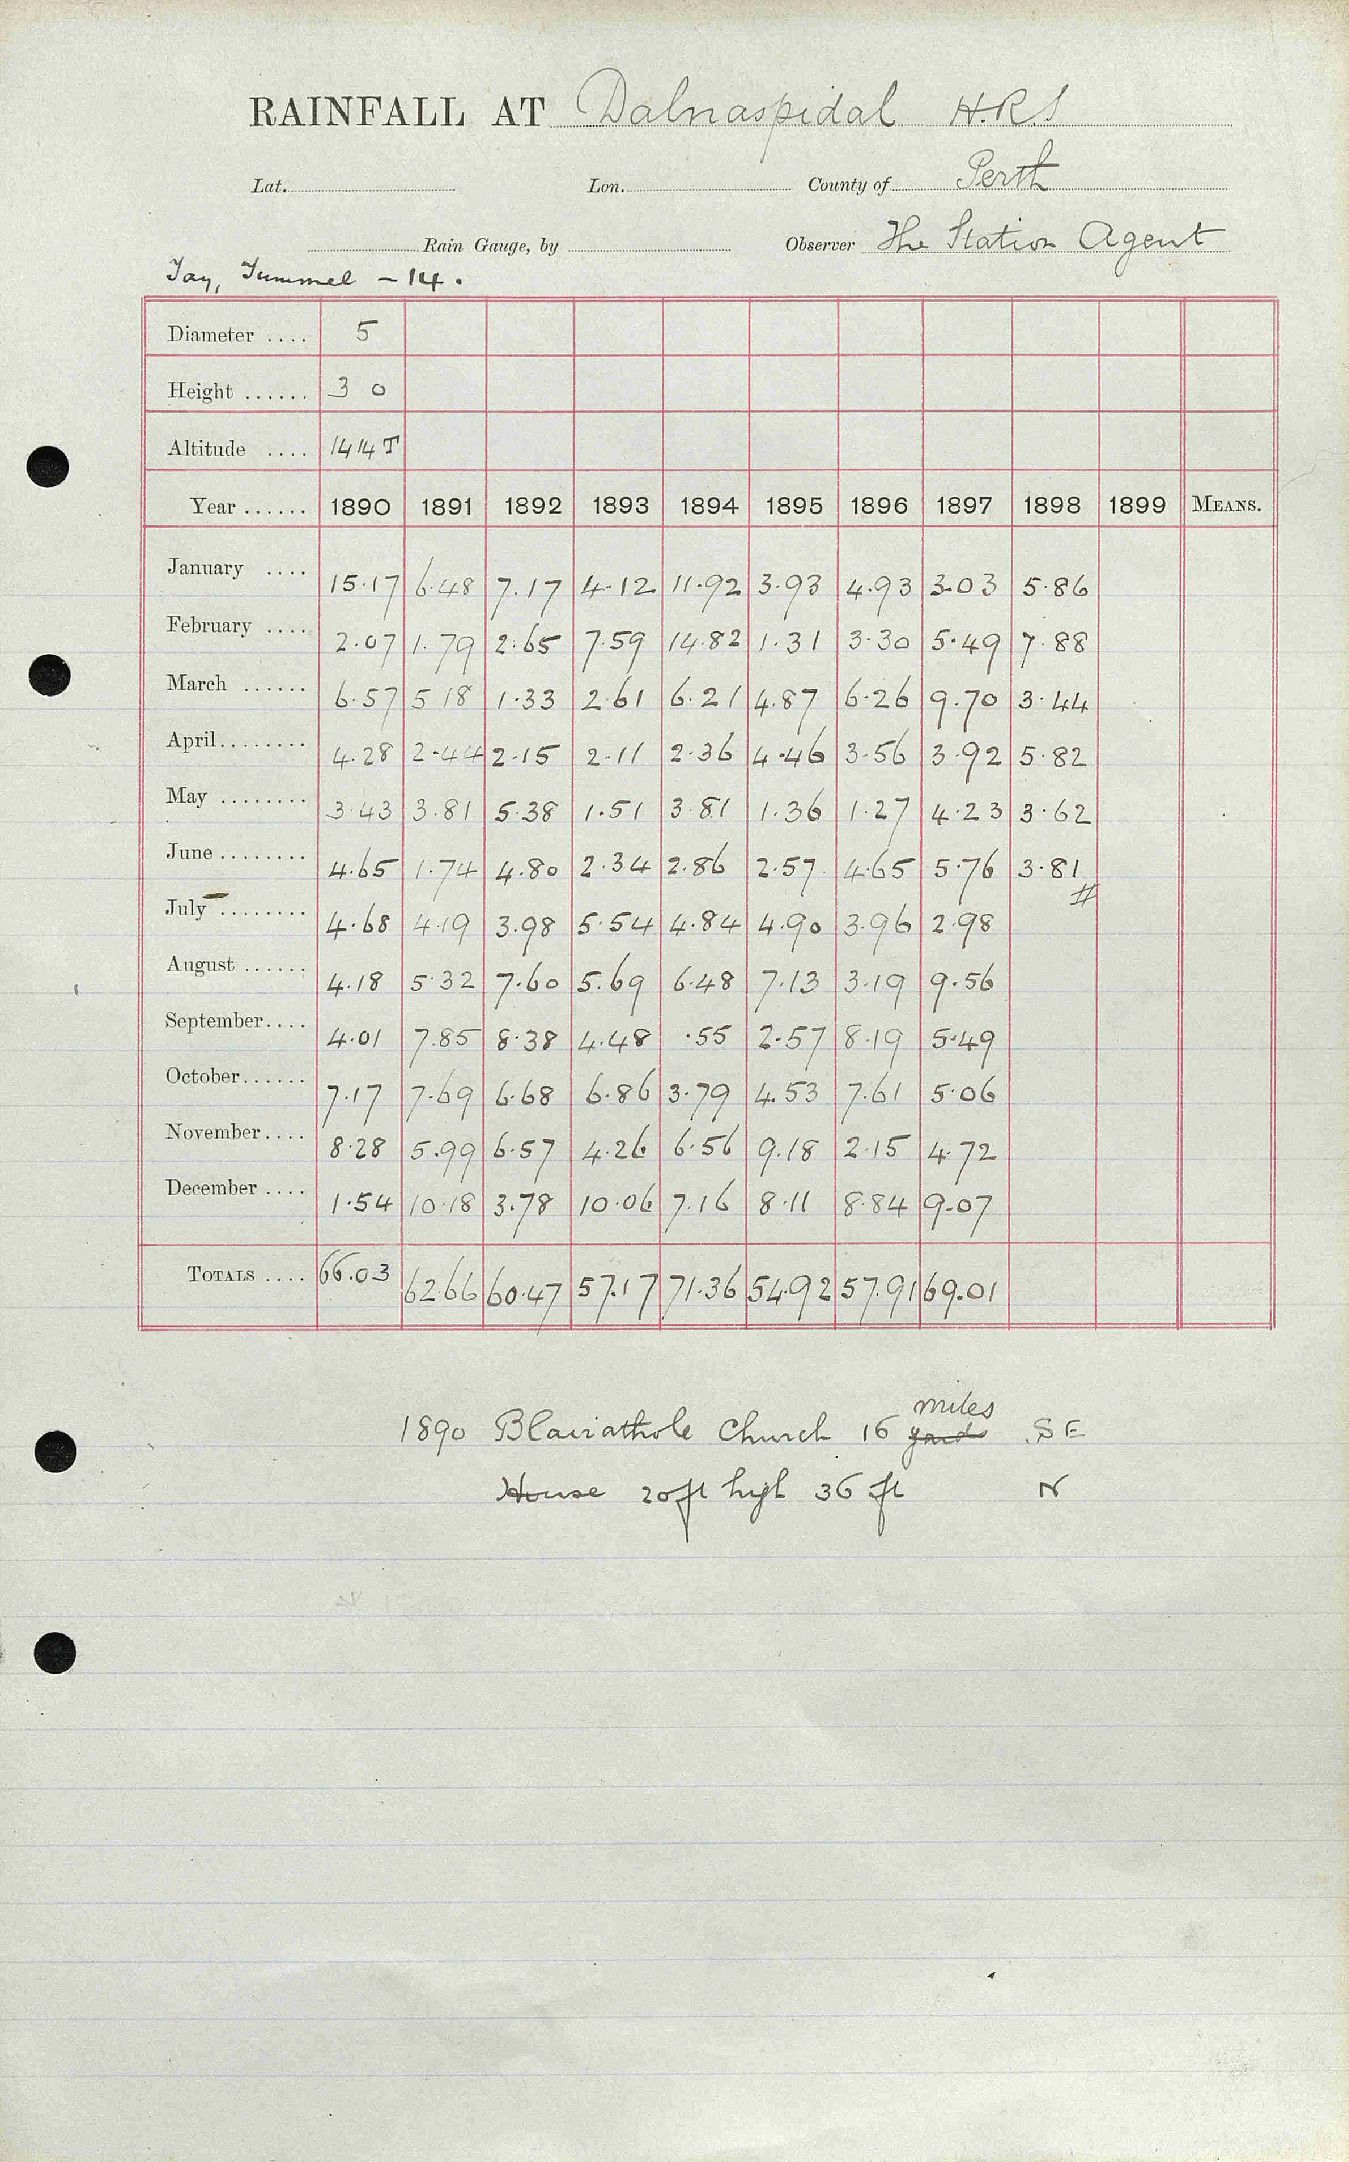 RAINFALL AT Dalnaspidal H.R.S
Lat. Lon. County of Perth
Rain Gauge, by Observer The Station Agent
Tay, Tummel - 14.
Diameter .... 5
Height ...... 3 0
Altitude .... 1414 T
Year ...... 1890 1891 1892 1893 1894 1895 1896 1897 1898 1899 MEANS.
January .... 15.17 6.48 7.17 4.12 11.92 3.93 4.93 3.03 5.86
February .... 2.07 1.79 2.65 7.59 14.82 1.31 3.30 5.49 7.88
March ...... 6.57 5 18 1.33 2.61 6.21 4.87 6.26 9.70 3.44
April........ 4.28 2.44 2.15 2.11 2.36 4.46 3.56 3.92 5.82
May ........ 3.43 3.81 5.38 1.51 3.81 1.36 1.27 4.23 3.62
June ........ 4.65 1.74 4.80 2.34 2.86 2.57 4.65 5.76 3.81
July ........ 4.68 4.19 3.98 5.54 4.84 4.90 3.96 2.98 #
August ...... 4.18 5.32 7.60 5.69 6.48 7.13 3.19 9.56
September.... 4.01 7.85 8.38 4.48 .55 2.57 8.19 5.49
October...... 7.17 7.69 6.68 6.86 3.79 4.53 7.61 5.06
November.... 8.28 5.99 6.57 4.26 6.56 9.18 2.15 4.72
December .... 1.54 10.18 3.78 10.06 7.16 8.11 8.84 9.07
TOTALS .... 66.03 62.66 60.47 57.17 71.36 54.92 57.91 69.01
miles
1890 Blairathole Church 16 yards SE
House 20ft high 36 ft N